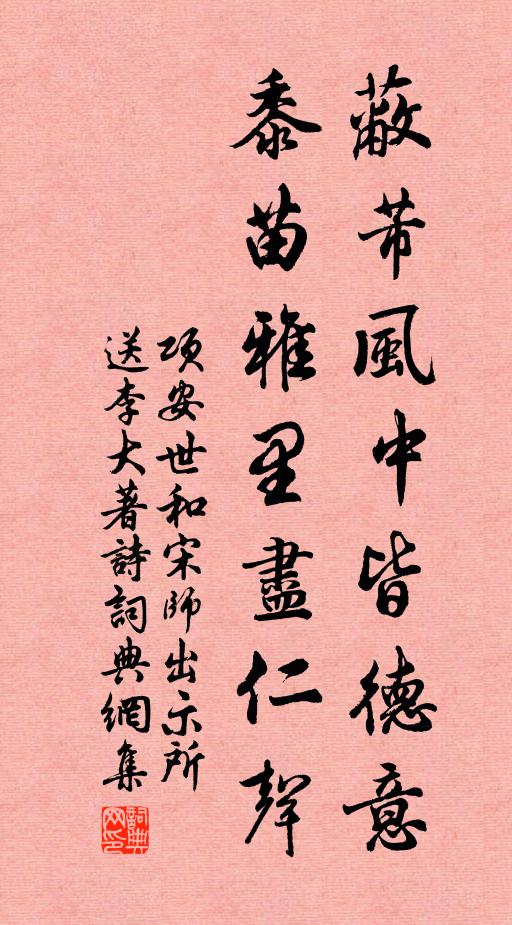 蔽芾風中皆德意
黍苗雅里盡仁聲
項安世和宋師出示所
送李大著詩詞典網集
詞典网印